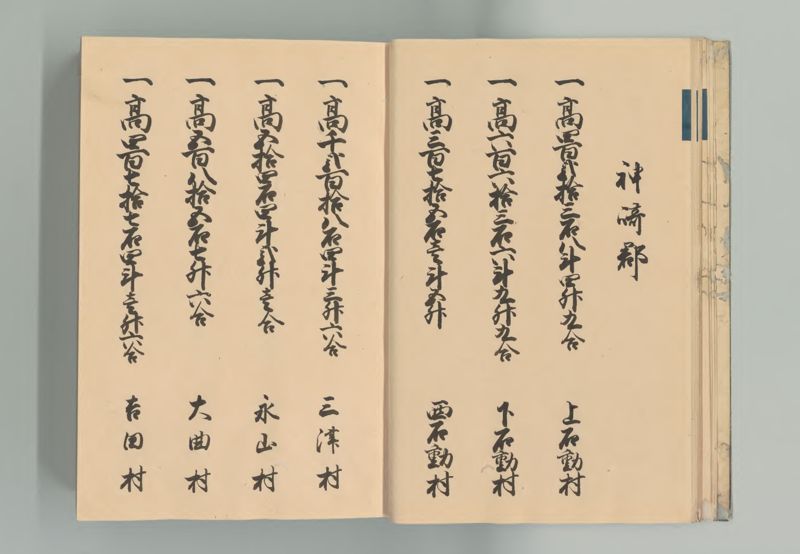 神崎郡
一高四百弐拾三石八斗四升九合 上石動村
一高六百六拾三石六斗九升九合 下石動村
一高三百七拾五石壱斗五升 西石動村
一高千弐百拾八石四斗三升六合 三津村
一高五拾四石四斗弐升壱合 永山村
一高五百八拾五石七升六合 大曲村
一高四百七拾七石四斗壱升六合 吉田村